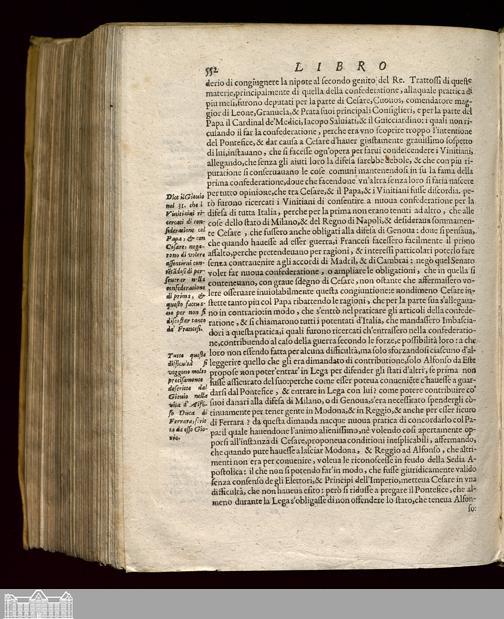 552 LIBRO
derio di congiugnere la nipote al secondo genito del Re. Trattossi di queste
materie, principalmente di quella della confederatione, alla quale pratica di
più mesi, furono deputati per la parte di Cesare, Cuouos, comendatore mag
gior di Leone, Granuela, & Prata suoi principali Consiglieri, e per la parte del
Papa il Cardinal de' Medici, Iacopo Saluiati, & il Guicciardino: i quali non ri-
cusando il far la confederatione, perche era vno scoprire troppo l'intentione
del Pontefice, & dar causa a Cesare d'hauer giustamente grauissimo sospetto
di lui, instauano, che si facesse ogn'opera per farui condescendere i Vinitiani,
allegando, che senza gli aiuti loro la difesa sarebbe debole, & che con più ri-
putatione si conseruauano le cose comuni mantenendosi in su la fama della
prima confederatione; doue che facendone vn'altra senza loro si faria nascere
per tutto opinione, che tra Cesare, & il Papa, & i Vinitiani fusse discordia. per-
tò furono ricercati i Vinitiani di consentire a nuoua confederatione per la
difesa di tutta Italia, perche per la prima non erano tenuti ad altro, che alle
cose dello stato di Milano, & del Regno di Napoli, & desideraua sommamen-
te Cesare, che fussero anche obligati alla difesa di Genoua: doue si pensaua,
che quando hauesse ad esser guerra, i Francesi facessero facilmente il primo
assalto, perche pretendeuano per ragioni, & interessi particolari poterlo fare
senza contrauenire agli accordi di Madril, & di Cambrai: negò quel Senato
voler far nuoua confederatione, o ampliare le obligationi, che in quella si
conteneuano, con graue sdegno di Cesare, non ostante che affermassero vo-
lere osseruare inuiolabilmente questa congiuntione: e nondimeno Cesare in-
stette tanto più col Papa ributtendo le ragioni, che per la parte sua s'allegaua-
no in contrario: in modo, che s'entrò nel praticare gli articoli della confede-
ratione, & si chiamarono tutti i potentati d'Italia, che mandassero Imbascia-
dori a questa pratica; i quali furono ricercati ch'entrassero nella confederatio-
ne, contribuendo al caso della guerra secondo le forze, e possibilità loro: a che
loro non essendo fatta per alcuna difficultà, ma solo sforzandosi ciascuno d'al-
leggerire quello che gli era dimandato di contributione, solo Alfonso da Este
propose non poter'entrar' in Lega per difender gli stati d'altri, se prima non
fusse assicurato del suo: perche come esser poteua conueniēte c'hauesse a guar-
darsi dal Pontefice, & entrare in Lega con lui? come potere contribuire co'
suoi danari alla difesa di Milano, o di Genoua, s'era necessitato spendergli cō-
tinuamente per tener gente in Modona, & in Reggio, & anche per esser sicuro
di Ferrara? da questa dimanda nacque nuoua pratica di concordarlo col Pa-
pa: il quale hauendone l'animo alienissimo, nè volendo così apertamente op-
porsi all'instanza di Cesare, proponeua conditioni inesplicabili, affermando,
che quando pure hauesse a lasciar Modona, & Reggio ad Alfonso, che altri-
menti non era per conuenire, voleua le riconoscesse in feudo della Sedia A-
postolica: il che non si potendo far in modo, che fusse giuridicamente valido
senza consenso de gli Elettori, & Principi dell'Imperio, metteua Cesare in vna
difficultà, che non haueua esito: però si ridusse a pregare il Pontefice, che al-
meno durante la Lega s'obligasse di non offendere lo stato, che teneua Alfon-
so:
Dice il Giouio
nel 31. che i
Vinitiani ri-
cercati di con-
federatione col
Papa, & con
Cesare: nega-
rono di volere
perseuerare nella
confederatione
di prima, &
questo faceua-
no per non si
discostar tanto
da' Francesi.
Tutte queste
difficultà si
veggono molto
precisamente
descritte dal
Giouio nella
vita d'Alfon-
so Duca di
Ferrara, scrit-
ta da esso Gio-
uio.